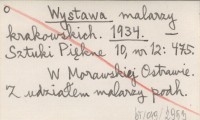 o Wystawa malarzy
krakowskich. 1934. —
Sztuki Piękne 10, nr. 12: 475.
W Morawskiej Ostrawie.
Z udziałem malarzy podh.